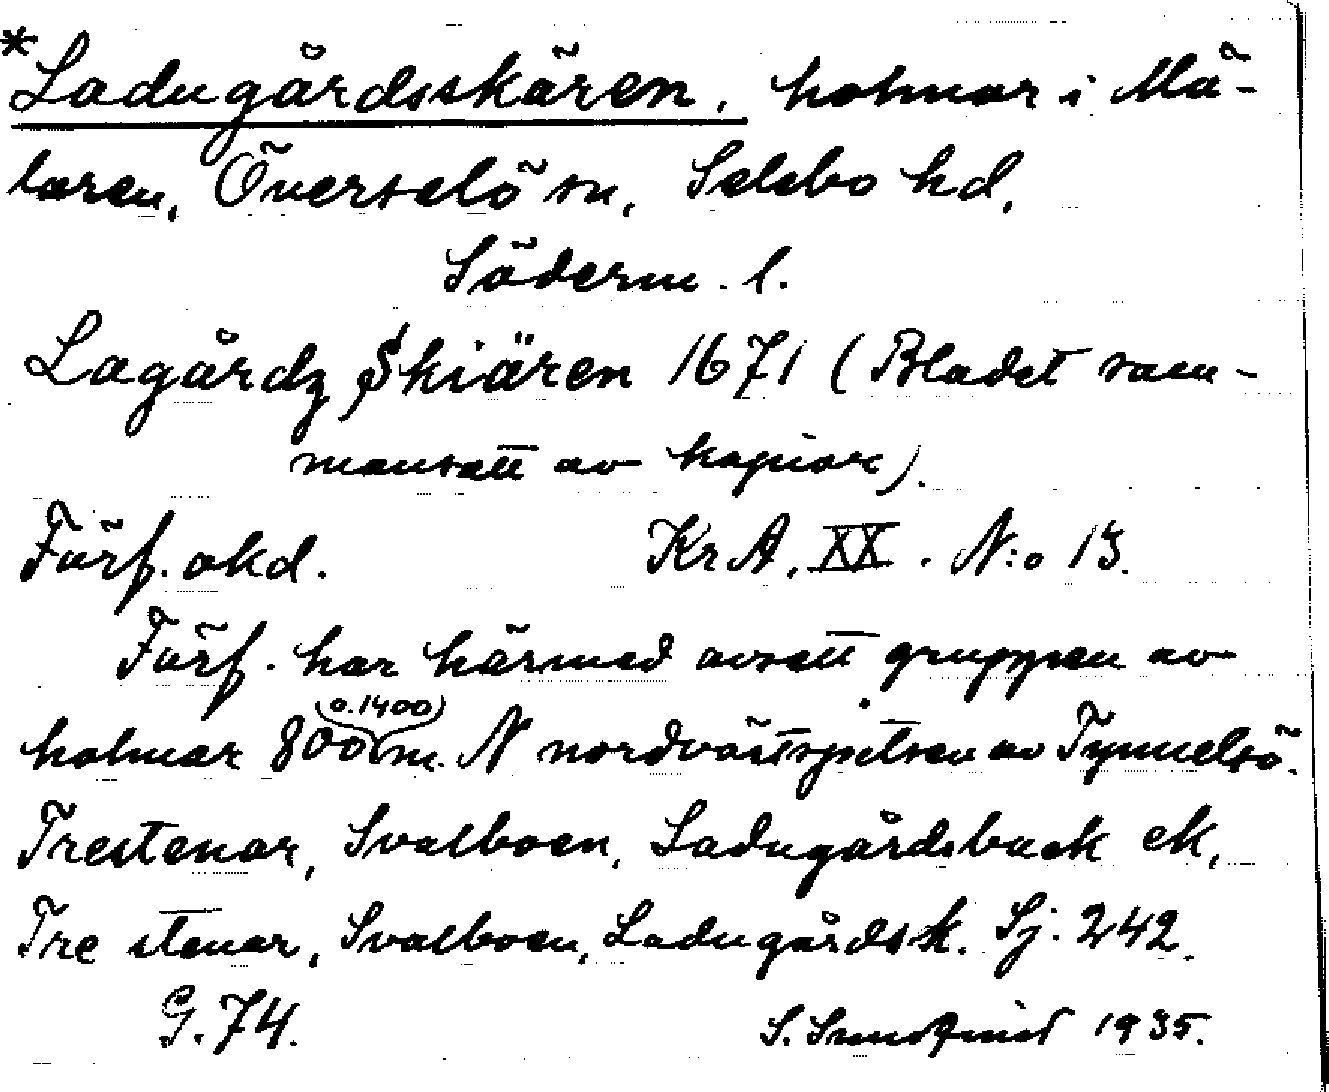 *Ladugårdsskären, holmar i Mä-
laren, Överselö sn, Selebo hd,
Söderm. l.
Lagårdz Skiären 1671 (Bladet sam-
mansatt av kopior).
Förf. okd. KrA, XX. N:o 13.
Förf. har härmed avsett gruppen av
(o. 1400)
holmar 800 m. N nordvästspetsen av Tynnelsö.
Trestenar, Svalboen, Ladugårdsback ek,
Tre stenar, Svalboen, Ladugårdsk. Sj. 242.
G. 74. S. Sundqvist 1935.